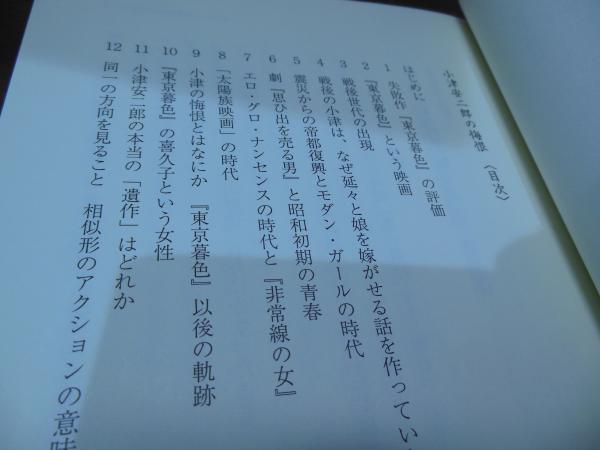 小津安二郎の悔恨 〈目次〉
はじめに
1 失敗作『東京暮色』の評価
2 『東京暮色』という映画
3 戦後世代の出現
4 戦後の小津は、なぜ延々と娘を嫁がせる話を作ってい
5 震災からの帝都復興とモダン・ガールの時代
6 劇『思ひ出を売る男』と昭和初期の青春
7 エロ・グロ・ナンセンスの時代と『非常線の女』
8 「太陽族映画」の時代
9 小津の悔恨とはなにか 『東京暮色』以後の軌跡
10 『東京暮色』の喜久子という女性
11 小津安二郎の本当の「遺作」はどれか
12 同一の方向を見ること 相似形のアクションの意味